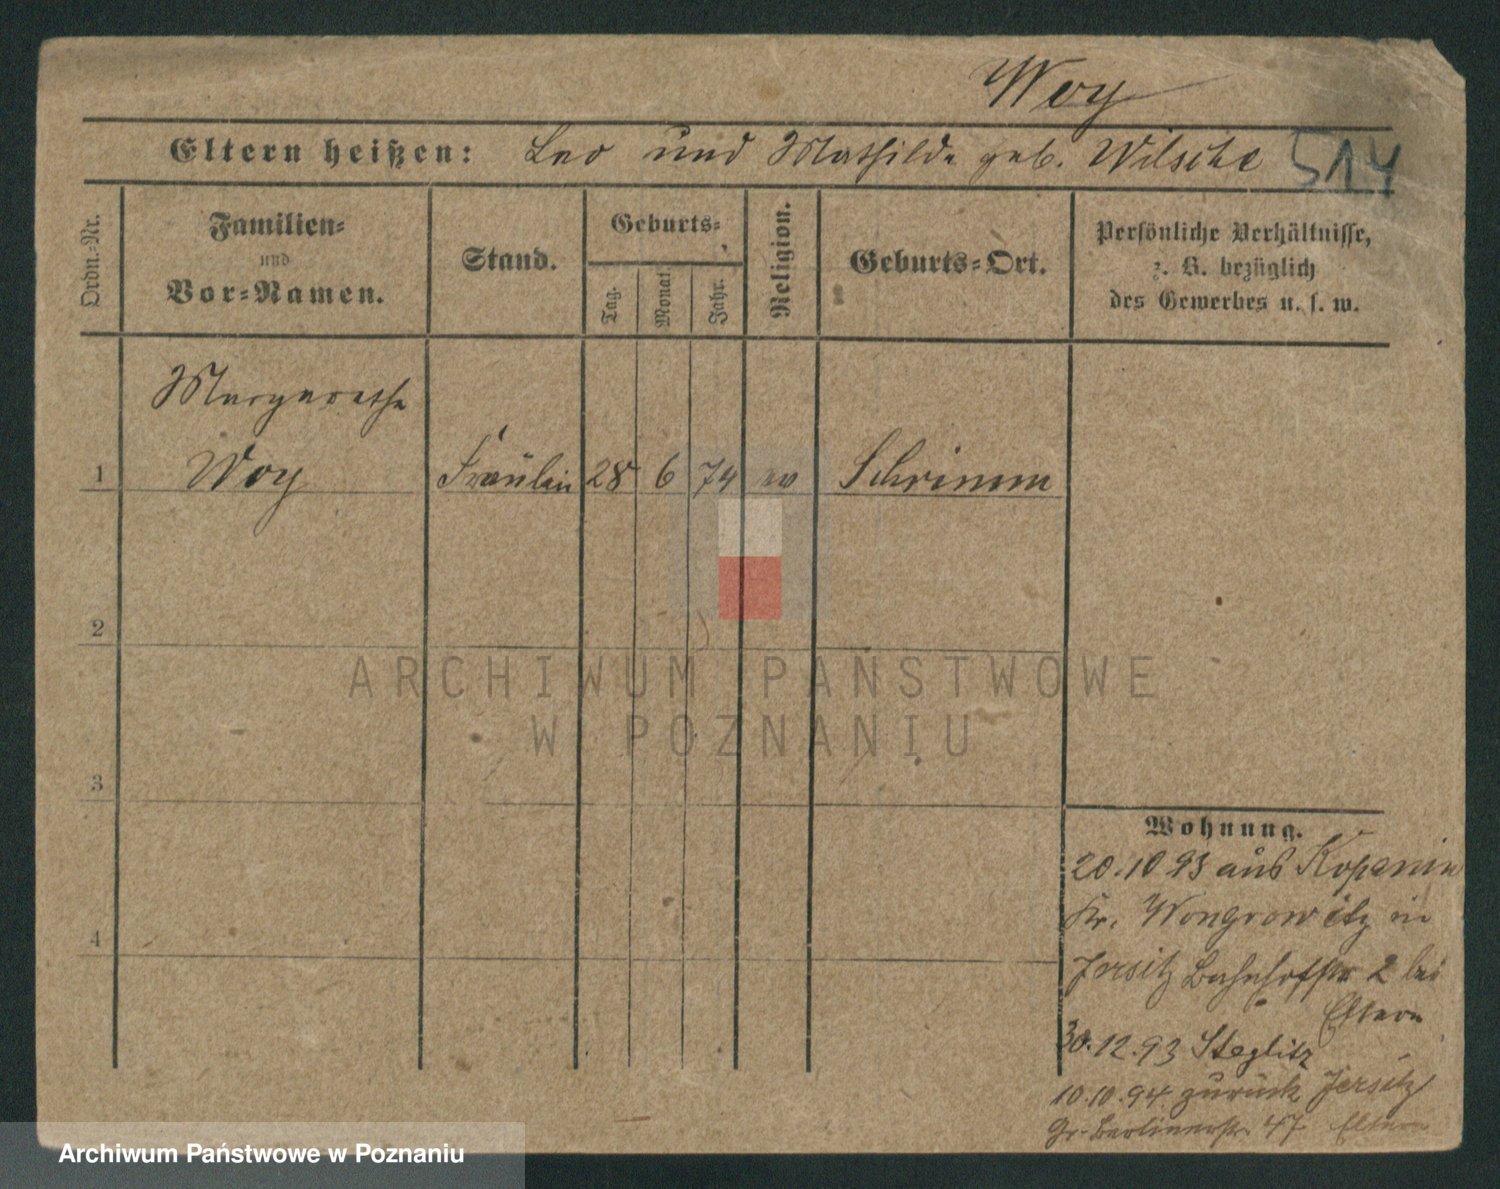 Woy
Eltern heißen: Leo und Mathilde geb. Wilscke 514
Ordn.-Nr.
Familien-
und
Vor-Namen.
Stand.
Geburts-
Tag.
Monat
Jahr.
Religion.
Geburts-Ort.
Persönliche Verhältnisse,
z. B. bezüglich
des Gewerbes u. s. w.
Margarethe
1 Woy Fräulein 28 6 74 ev Schrimm
2
3
4
Wohnung.
20.10 93 aus Kopanin
Kr. Wongrowitz in
Jersitz Bahnhofstr 2 bei
Eltern
30.12.93 Steglitz
10.10.94 zurück Jersitz
Gr. Berlinerstr. 47 Eltern
ARCHIWUM PAŃSTWOWE
W POZNANIU
Archiwum Państwowe w Poznaniu